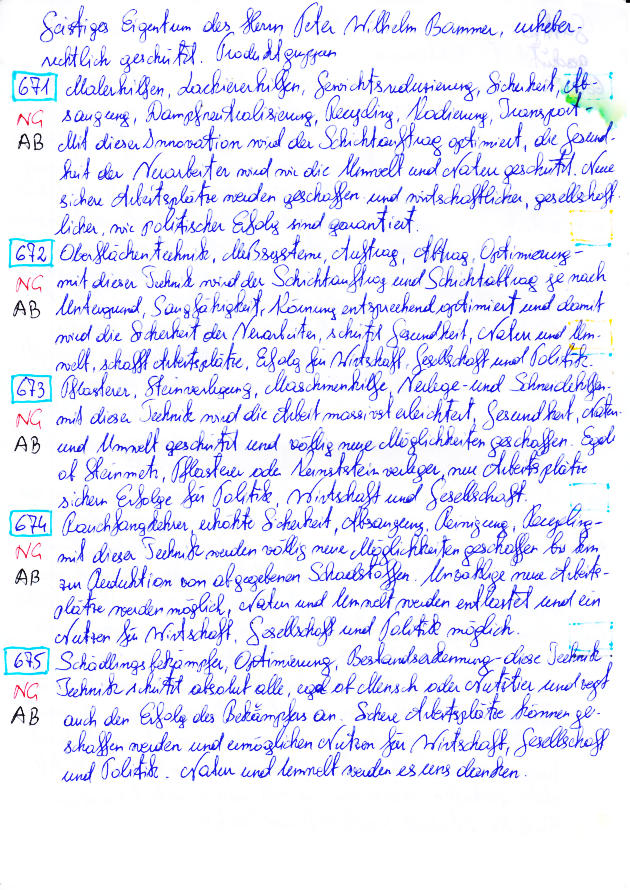 Geistiges Eigentum des Herrn Peter Wilhelm Bammer, urheber-
rechtlich geschützt. Produktgruppen
671 Malerhilfen, Lackiererhilfen, Gewichtsreduzierung, Sicherheit, Ab-
NG saugung, Dampfneutralisierung, Recycling, Radierung, Transport -
AB Mit dieser Innovation wird der Schichtauftrag optimiert, die Gesund-
heit der Verarbeiter wird wie die Umwelt und Natur geschützt. Neue
sichere Arbeitsplätze werden geschaffen und wirtschaftlicher, gesellschaft-
licher, wie politischer Erfolg sind garantiert.
672 Oberflächentechnik, Meßsysteme, Auftrag, Abtrag, Optimierung -
NG mit dieser Technik wird der Schichtauftrag und Schichtabtrag je nach
AB Untergrund, Saugfähigkeit, Körnung entsprechend optimiert und damit
wird die Sicherheit der Verarbeiter, schützt Gesundheit, Natur und Um-
welt, schafft Arbeitsplätze, Erfolg für Wirtschaft, Gesellschaft und Politik.
673 Pflasterer, Steinverlegung, Maschinenhilfe, Verlege- und Schneidehilfen -
NG mit dieser Technik wird die Arbeit massivst erleichtert, Gesundheit, Natur-
AB und Umwelt geschützt und völlig neue Möglichkeiten geschaffen. Egal
ob Steinmetz, Pflasterer oder verleger, neue Arbeitsplätze
sichern Erfolge für Politik, Wirtschaft und Gesellschaft.
674 Rauchfangkehrer, erhöhte Sicherheit, Absaugung, Reinigung, Recycling -
NG mit dieser Technik werden völlig neue Möglichkeiten geschaffen bis hin
AB zur Reduktion von abgegebenen Schadstoffen. Unzählige neue Arbeits-
plätze werden möglich, Natur und Umwelt werden entlastet und ein
Nutzen für Wirtschaft, Gesellschaft und Politik möglich.
675 Schädlingsbekämpfer, Optimierung, Bestandserkennung - diese Technik -
NG Technik schützt absolut alle, egal ob Mensch oder Nutztier und regt
AB auch den Erfolg des Bekämpfers an. Sichere Arbeitsplätze können ge-
schaffen werden und ermöglichen Nutzen für Wirtschaft, Gesellschaft
und Politik. Natur und Umwelt werden es uns danken.